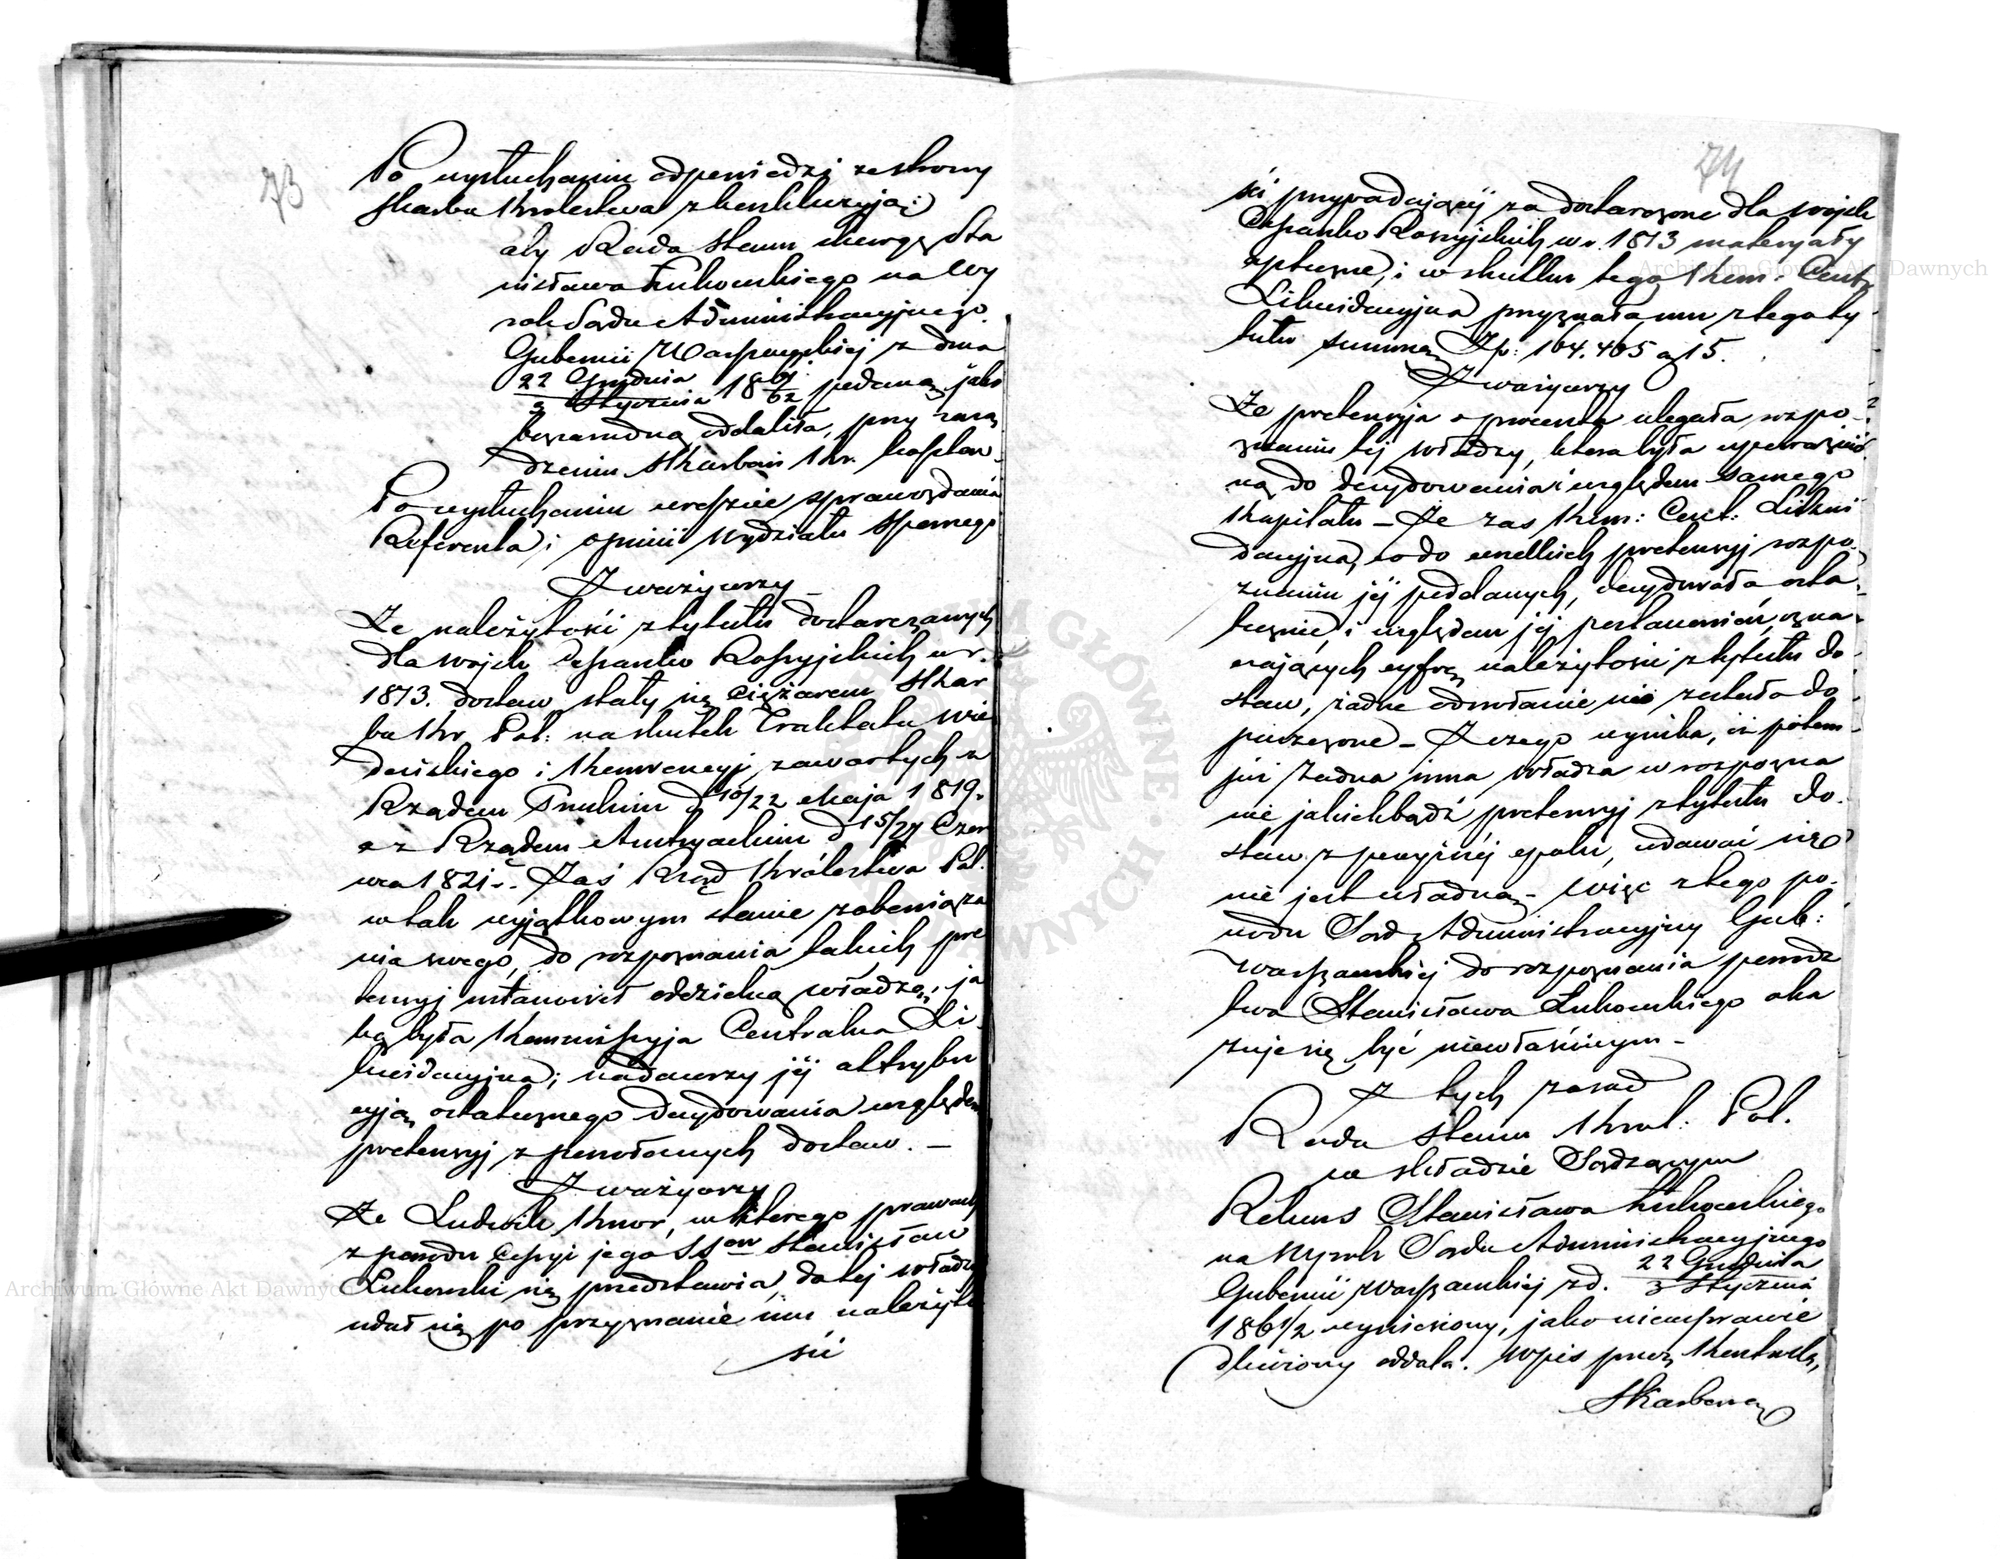 73
Po wysłuchaniu odpowiedzi ze strony
Skarbu Królestwa z konkluzyją:
aby Rada Stanu skargę Sta
nisława Łukowskiego na Wy
rok Sądu Administracyjnego
Gubernii Warszawskiej z dnia
22 Grudnia
3 Stycznia 1861/62 podaną jako
bezzasadną oddaliła, przy zasą
dzeniu Skarbowi Kr. kosztów.
Po wysłuchaniu wreszcie sprawozdania
Referenta i opinii Wydziału Spornego
Zważywszy
Że należytości z tytułu dostarczanych
dla wojsk Cesarsko Rossyjskich w r.
1813. dostaw stały się ciężarem Skar
bu Kr. Pol: na skutek Traktatu Wie
deńskiego i Konwencyj zawartych z
Rządem Pruskim d 10/22 Maja 1819.
a z Rządem Austryackim d 15/27 Czer
wca 1821 r. Zaś Rząd Królestwa Pol.
w tak wyjątkowym stanie zobowiąza
nia swego, do rozpoznania takich pre
tensyj ustanowił oddzielną władzę, ja
ką była Kommissyja Centralna Li
kwidacyjna; nadawszy jéj attrybu
cyją ostatecznego decydowania względem
pretensyj z powołanych dostaw. —
Zważywszy
Że Ludwik Knor, w którego prawach
z powodu Cessyi jego SSor Stanisław
Łukowski się przedstawia, do tej władzy
udał się po przyznanie mu należyto
ści
74
ści przypadającéj za dostarczone dla wojsk
Cesarsko Rossyjskich w r. 1813 materyały
apteczne, i w skutku tego Kom: Centr.
Likwidacyjna przyznała mu z tego ty
tułu summę Zp: 164.465 g 15.
Zważywszy
Że pretensyja o procenta ulegała rozpo-
znaniu téj władzy, która była upoważnio
ną do decydowania względem samego
Kapitału — Że zaś Kom: Cent: Likwi
dacyjna, co do wszelkich pretensyj rozpo-
znaniu jéj poddanych, decydowała osta
tecznie, i względem jéj postanowień, ozna-
czających cyfrę należytości z tytułu do
staw, żadne odwołanie nie zostało do
puszczone — Z czego wynika, iż potem
już żadna inna władza w rozpozna
nie jakichbądź pretensyj z tytułu do.
staw z powyższéj epoki, wdawać się
nie jest władną — Więc z tego po-
wodu Sąd Administracyjny Gub:
Warszawskiej do rozpoznania powódz
twa Stanisława Łukowskiego oka
zuje się być niewłaściwym —
Z tych zasad
Rada Stanu Król: Pol.
w składzie Sądzącym
Rekurs Stanisława Łukowskiego
na Wyrok Sądu Administracyjnego
Gubernii Warszawskiej z d. 22 Grudnia
3 Stycznia
1861/2 wyniesiony, jako nieusprawie
dliwiony oddala. Wpis przez Kontrolę
Skarbową